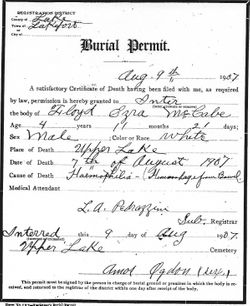 REGISTRATION DISTRICT
County of Lake
Town of Lakeport
Burial Permit.
Aug. 9th 1907
A satisfactory Certificate of Death having been filed with me, as required
by law, permission is hereby granted to Inter
the body of Floyd Ezra McCabe
Age 4 years 9 months 21 days
Sex Male Color or Race White
Place of Death Upper Lake
Date of Death 7th of August 1907
Cause of Death Haemophilia - Hemorrhage from Bowel
Medical Attendant
L. A. Sub. Registrar
Interred this 9 day of Aug 1907.
Upper Lake Cemetery
Amos Ogdon (sex.)
This permit must be signed by person in charge of burial ground or premises in which the body is re-
ceived, and returned to the registrar of the district within one day after receipt of the body.